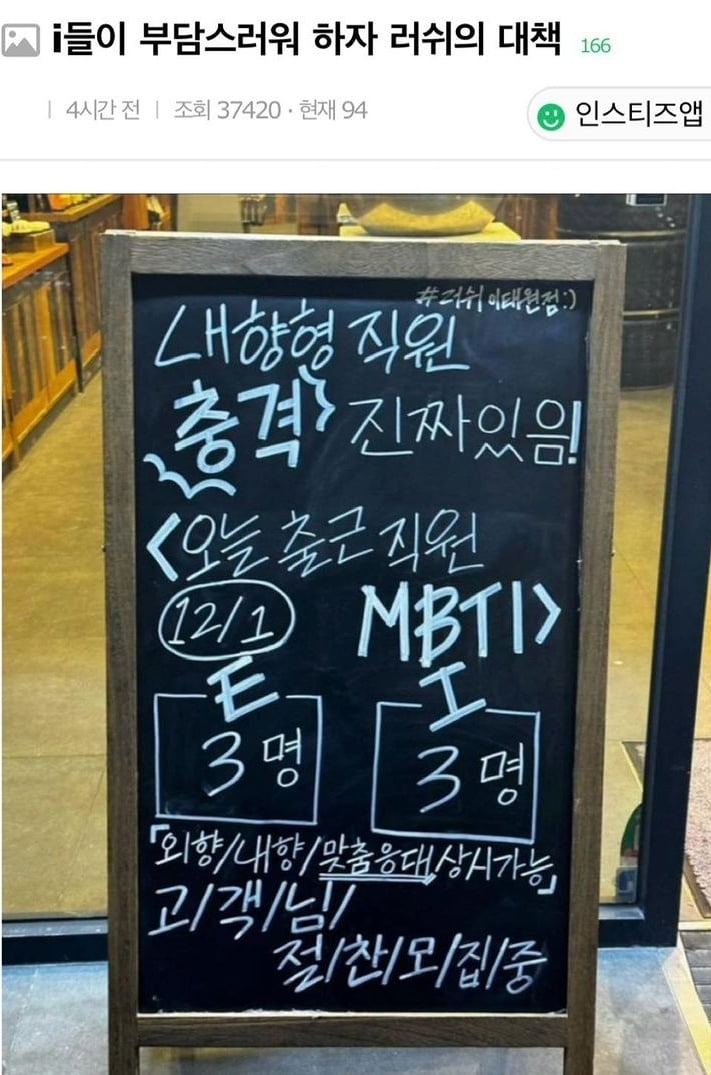 i들이 부담스러워 하자 러쉬의 대책 166
4시간 전 | 조회 37420 · 현재 94
인스티즈앱
#러쉬 이태원점:)
내향형 직원
충격 진짜있음!
<오늘 출근 직원
12/1 MBTI>
E I
3명 3명
「외향/내향/맞춤응대/상시가능」
고/객/님/
절/찬/모/집/중